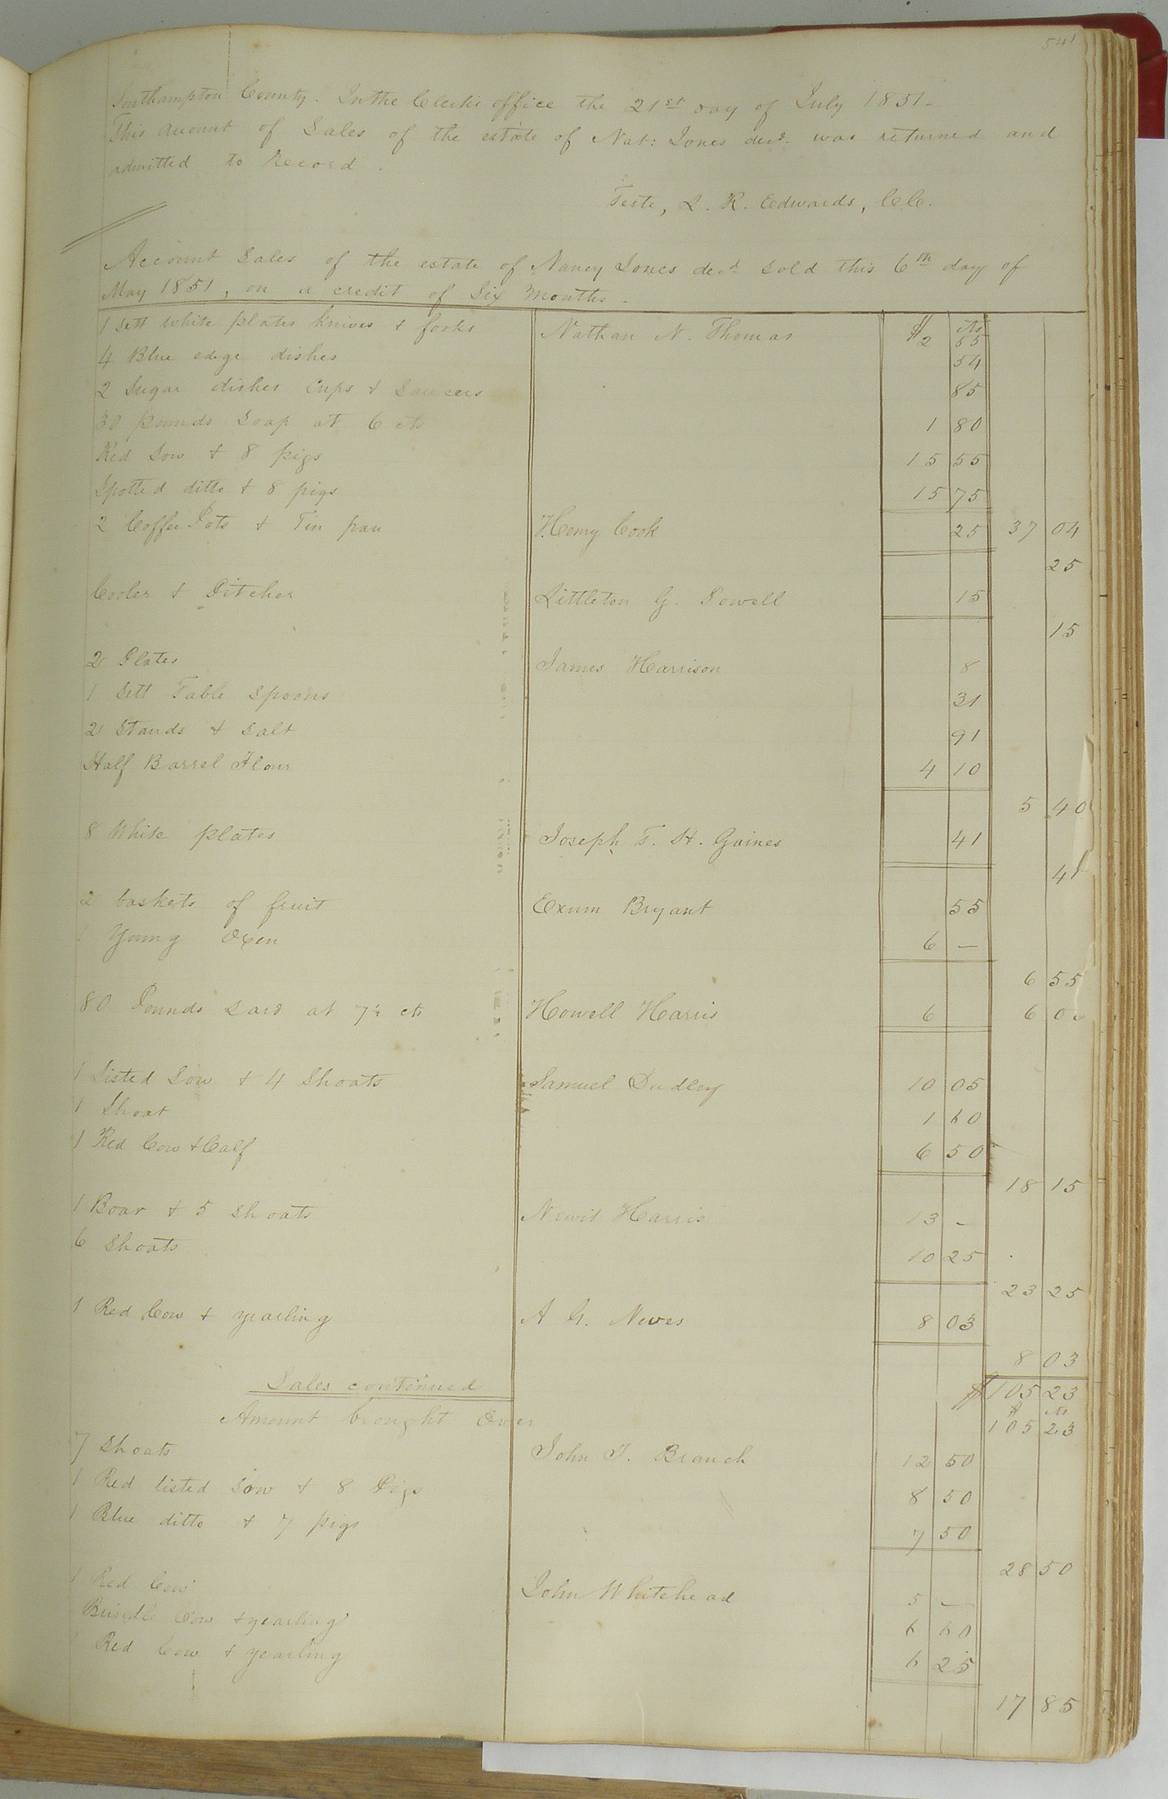 541
Southampton County. In the Clerk's office the 21st day of July 1851-
This account of Sales of the estate of Nat: Jones decd. was returned and
admitted to Record.
Teste, L. R. Edwards, C.C.
Account Sales of the estate of Nancy Jones decd. sold this 6th day of
May 1851, on a credit of Six Months.
1 Sett white plates knives & forks Nathan N. Thomas $2 cts 55
4 Blue edge dishes 54
2 Sugar dishes Cups & Saucers 85
30 pounds Soap at 6 cts 1 80
Red Sow & 8 pigs 15 55
Spotted ditto & 8 pigs 15 75
2 Coffee Pots & Tin pan Henry Cook 25 37 04
25
Cooler & Pitcher Littleton G. Powell 15
15
2 Plates James Harrison 8
1 Sett Table Spoons 31
2 Stands & Salt 91
Half Barrel Flour 4 10
5 40
8 White plates Joseph T. H. Gaines 41
41
2 baskets of fruit Exum Bryant 55
1 Young Oxen 6 —
6 55
80 Pounds Lard at 7½ cts Howell Harris 6 6 00
1 Listed Sow & 4 Shoats Samuel Dudley 10 05
1 Shoat 1 60
1 Red Cow & Calf 6 50
18 15
1 Boar & 5 Shoats Newit Harris 13 -
6 Shoats 10 25
23 25
1 Red Cow & yearling A G. Neves 8 03
8 03
Sales continued $105 23
Amount brought Over $ cts 105 23
7 Shoats John T. Branch 12 50
1 Red listed Sow & 8 Pigs 8 50
1 Blue ditto & 7 pigs 7 50
28 50
1 Red Cow John Whitehead 5 —
Brindle Cow & yearling 6 60
1 Red Cow & yearling 6 25
17 85